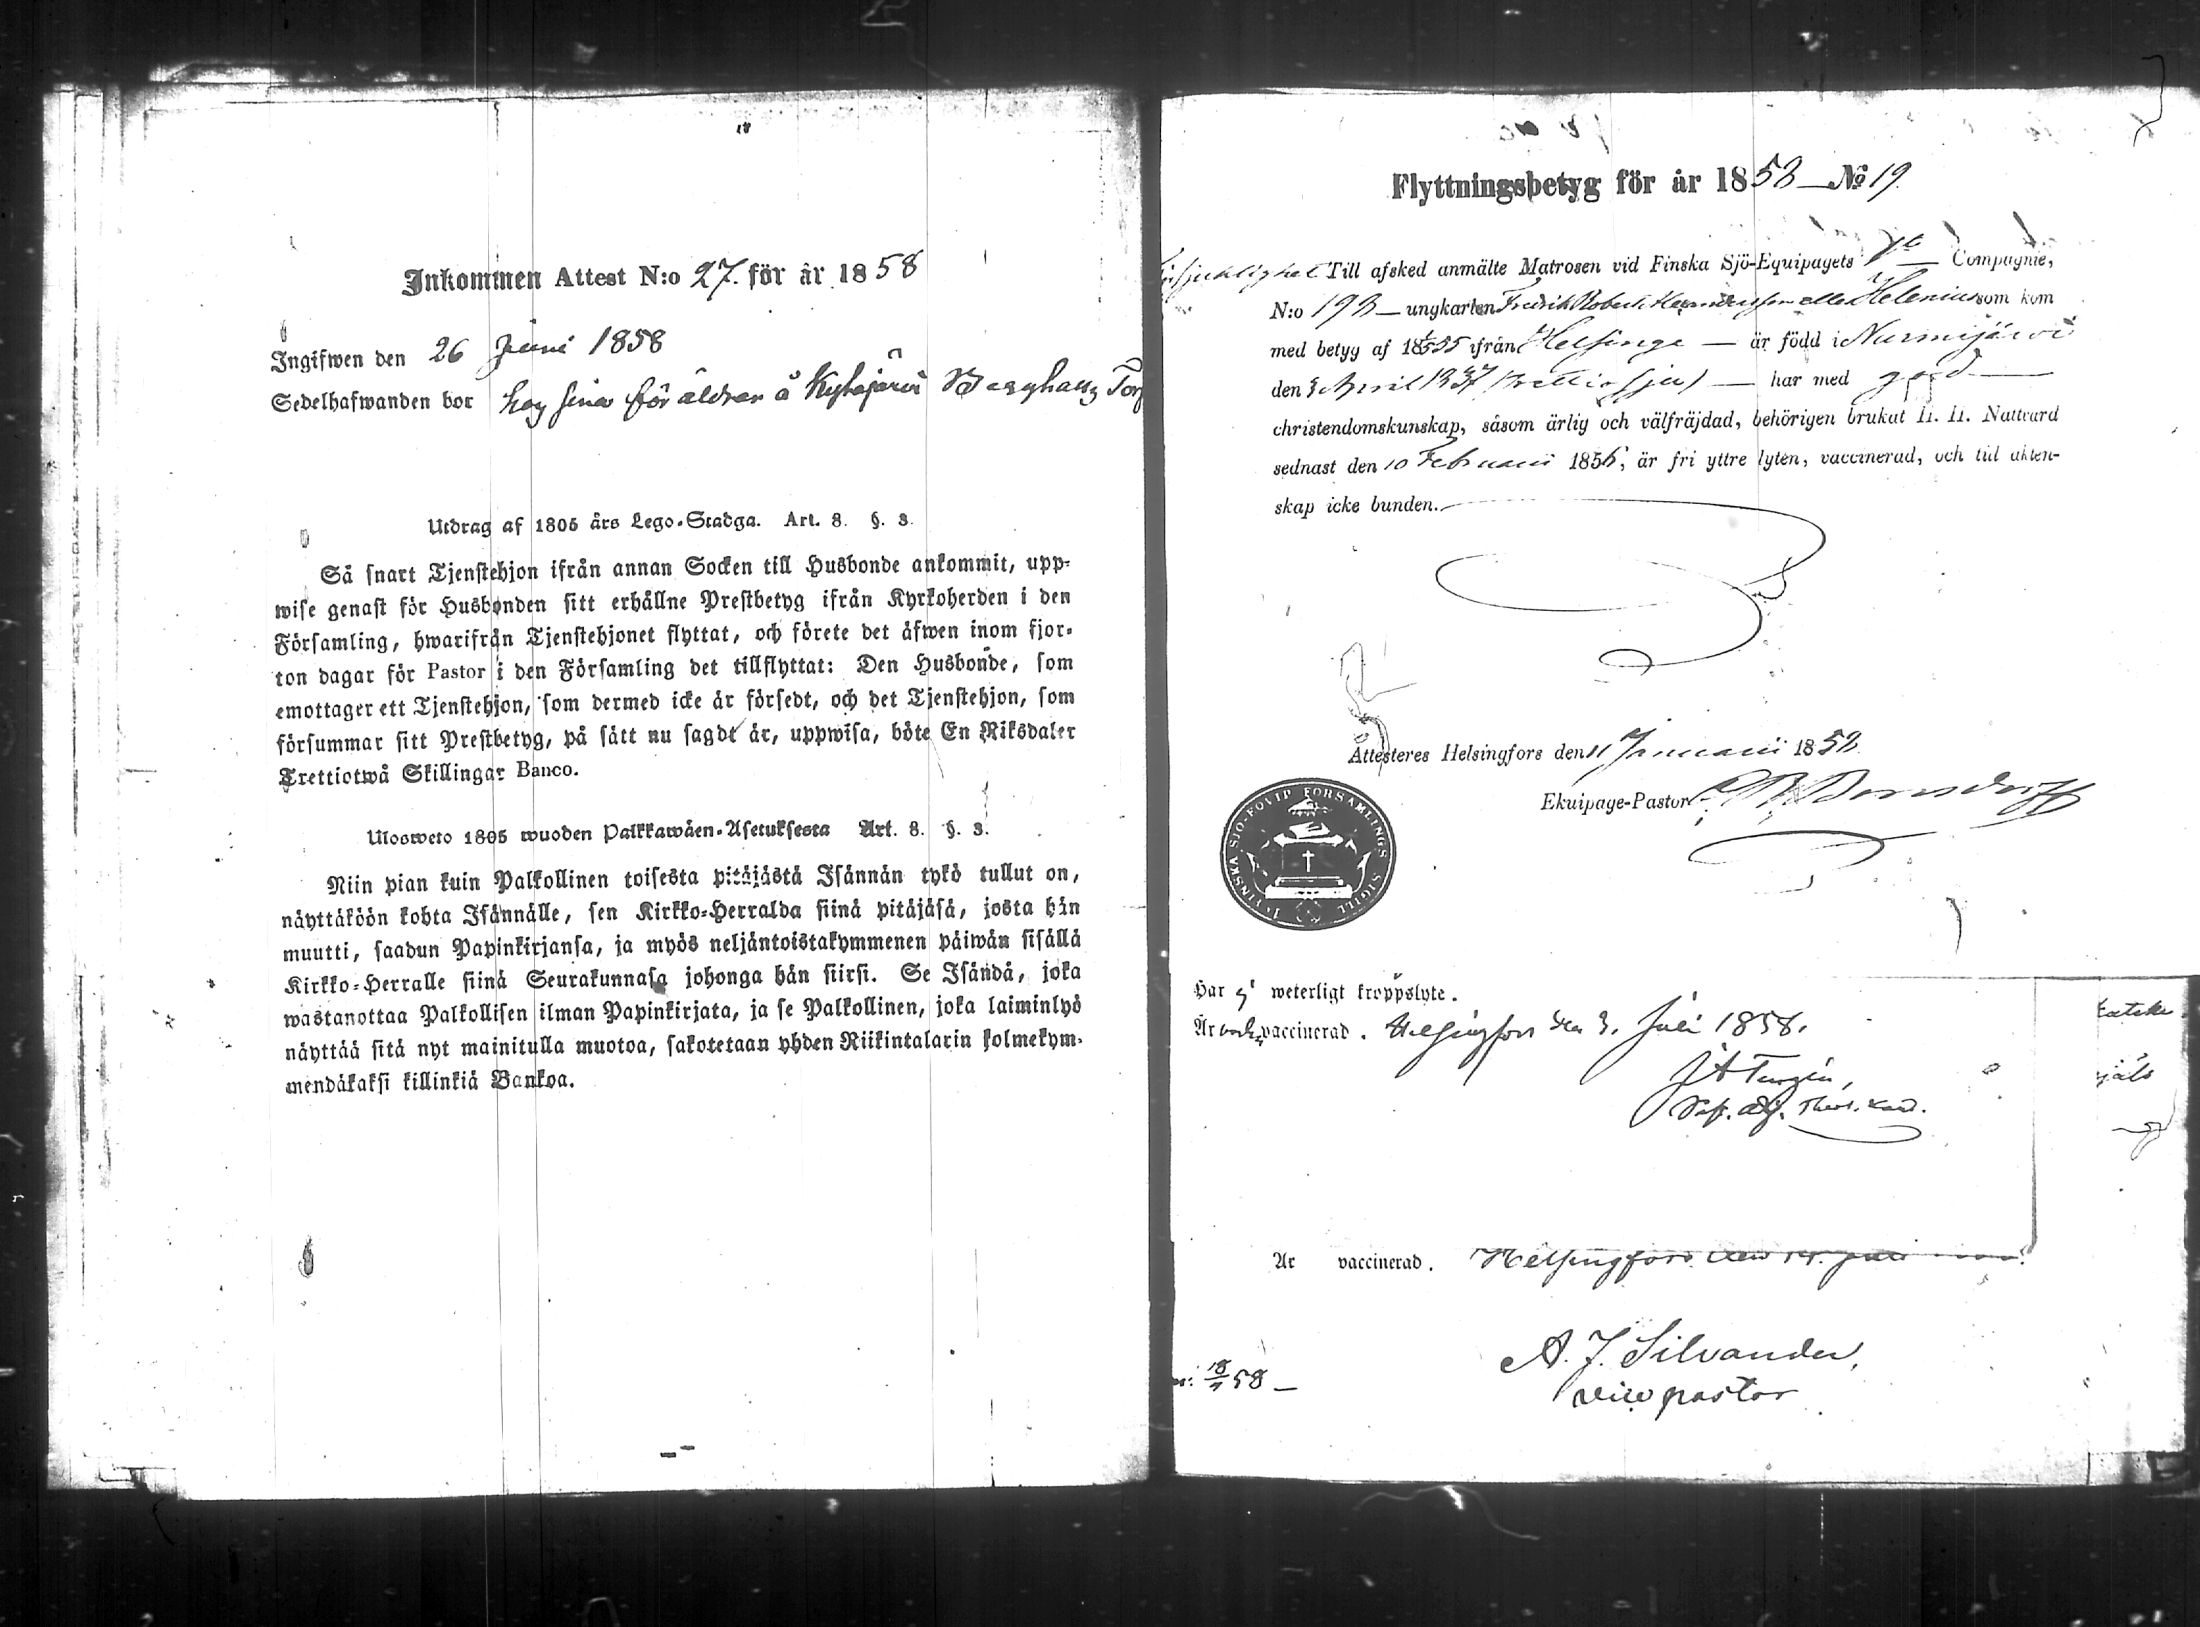 Inkommen Attest N:o 27. för år 1858
Ingifwen den 26 Juni 1858
Sedelhafwanden bor hos sina föräldrar å Kyhäjärvi Berghanz Torp
Utdrag af 1805 års Lego-Stadga. Art. 8. §. 3.
Så snart Tjenstehjon ifrån annan Socken till Husbonde ankommit, upp-
wise genast för Husbonden sitt erhållne Prestbetyg ifrån Kyrkoherden i den
Församling, hwarifrån Tjenstehjonet flyttat, och förete det äfwen inom fjor-
ton dagar för Pastor i den Församling det tillflyttat: Den Husbonde, som
emottager ett Tjenstehjon, som dermed icke är försedt, och det Tjenstehjon, som
försummar sitt Prestbetyg, på sätt nu sagdt är, uppwisa, böte En Riksdaler
Trettiotwå Skillingar Banco.
Ulosweto 1805 wuoden Palkkawäen-Asetuksesta Art. 8. §. 3.
Niin pian kuin Palkollinen toisesta pitäjästä Isännän tykö tullut on,
näyttäköön kohta Isännälle, sen Kirkko-Herralda siinä pitäjäsä, josta hän
muutti, saadun Papinkirjansa, ja myös neljäntoistakymmenen päiwän sisällä
Kirkko-Herralle siinä Seurakunnasa johonga hän siirsi. Se Isändä, joka
wastanottaa Palkollisen ilman Papinkirjata, ja se Palkollinen, joka laiminlyö
näyttää sitä nyt mainitulla muotoa, sakotetaan yhden Riikintalarin kolmekym-
mendäkaksi killinkiä Bankoa.
Flyttningsbetyg för år 1858 — No 19.
Till afsked anmälte Matrosen vid Finska Sjö-Equipagets Compagnie,
N:o 193 — ungkarlen Fredrik Robert eller Helenius som kom
med betyg af 1855 ifrån Helsinge — är född i Nurmijärvi
den 3 April 1837 (trettiosju) — har med god —
christendomskunskap, såsom ärlig och välfräjdad, behörigen brukat H. H. Nattvard
sednast den 10 Februarii 1856, är fri yttre lyten, vaccinerad, och till äkten-
skap icke bunden.
Attesteres Helsingfors den 11 Januarii 1858
Ekuipage-Pastor
FINSKA SJÖ-EQVIP. FÖRSAMLINGS SIGILL
Har ej weterligt kroppslyte.
Är vaccinerad. Helsingfors den 3. Juli 1858.
Är vaccinerad. Helsingfors den 14. Juli
A. J. Silvander,
vice pastor
58 —